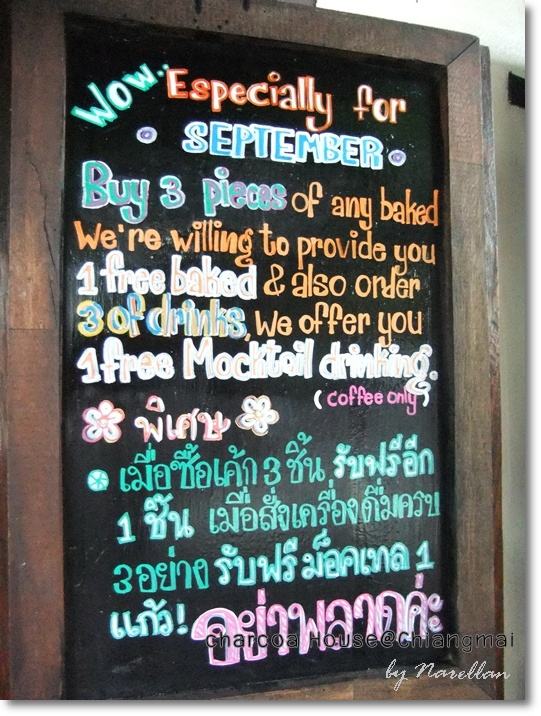 Wow.. Especially for
SEPTEMBER
Buy 3 pieces of any baked
We're willing to provide you
1 free baked & also order
3 of drinks, we offer you
1 free Mocktail drinking.
(coffee only)
พิเศษ
เมื่อซื้อเค้ก 3 ชิ้น รับฟรีอีก
1 ชิ้น เมื่อสั่งเครื่องดื่มครบ
3 อย่าง รับฟรี ม็อคเทล 1
แก้ว! อย่าพลาดค่ะ
charcoa House@Chiangmai
by Narellan